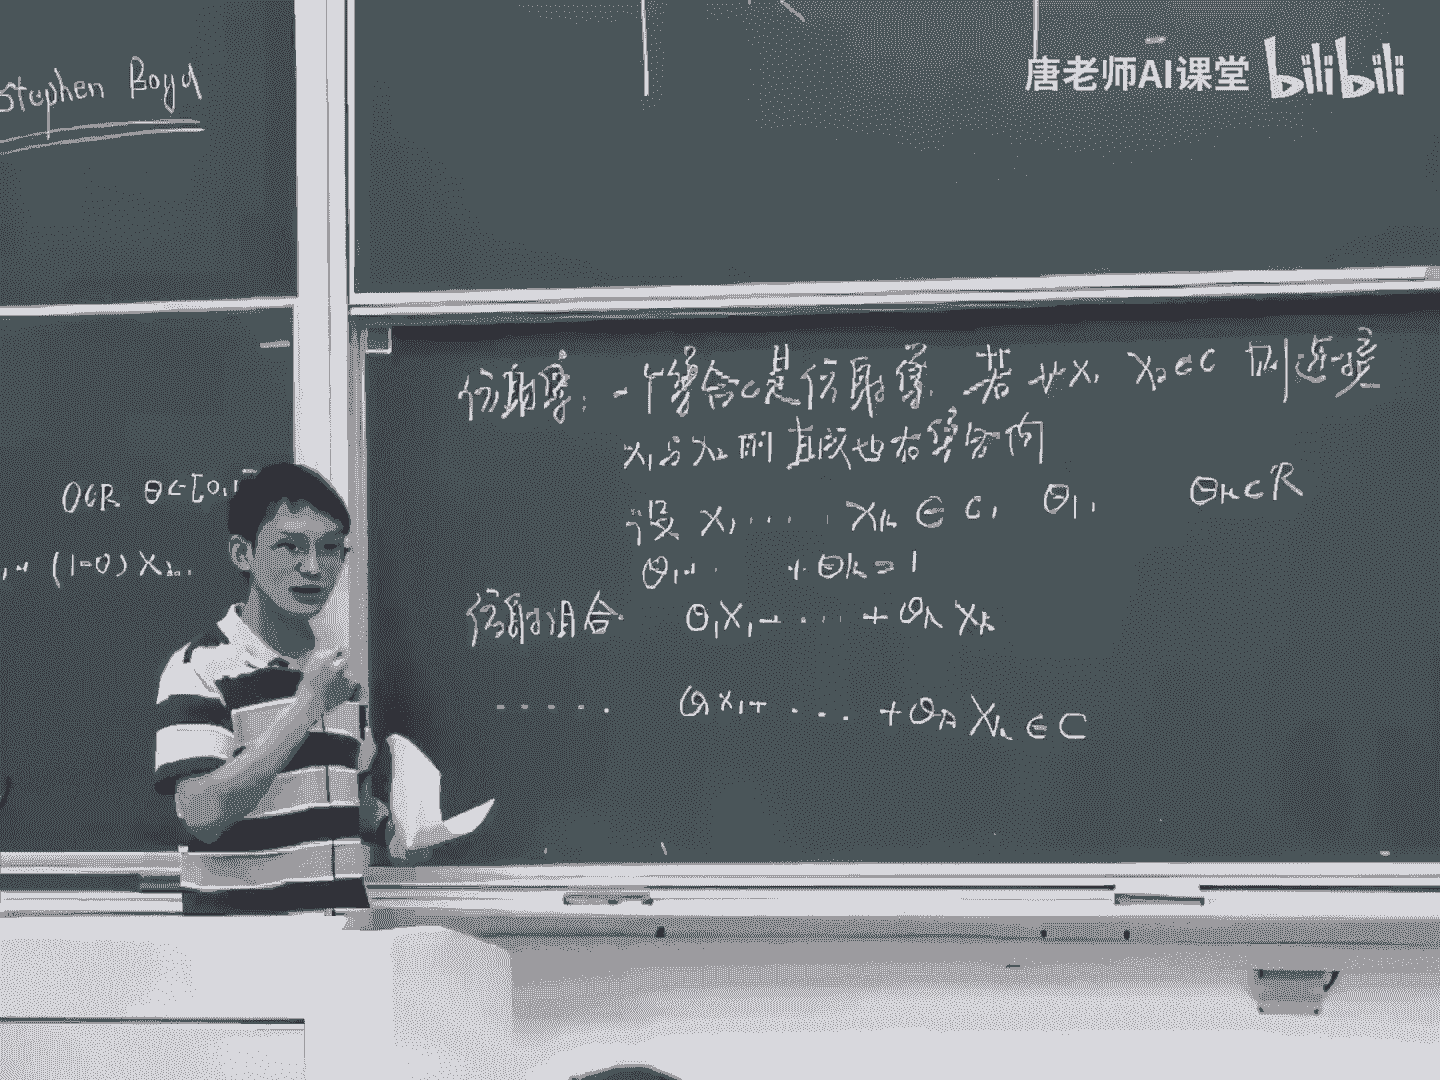 Stephen Boyd
唐老师AI课堂 bilibili
θ∈R θ∈[0,1]
(1-θ) X₂
仿射集: 一个集合C是仿射集, 若 ∀ X₁ X₂∈C 则连接
X₁与X₂的直线也在集合内
设 X₁ ... Xₖ ∈ C, θ₁, θₖ∈R
θ₁+ · +θₖ=1
仿射组合 θ₁X₁+ ... +θₖXₖ
..... θ₁X₁+ ... +θₖXₖ∈C